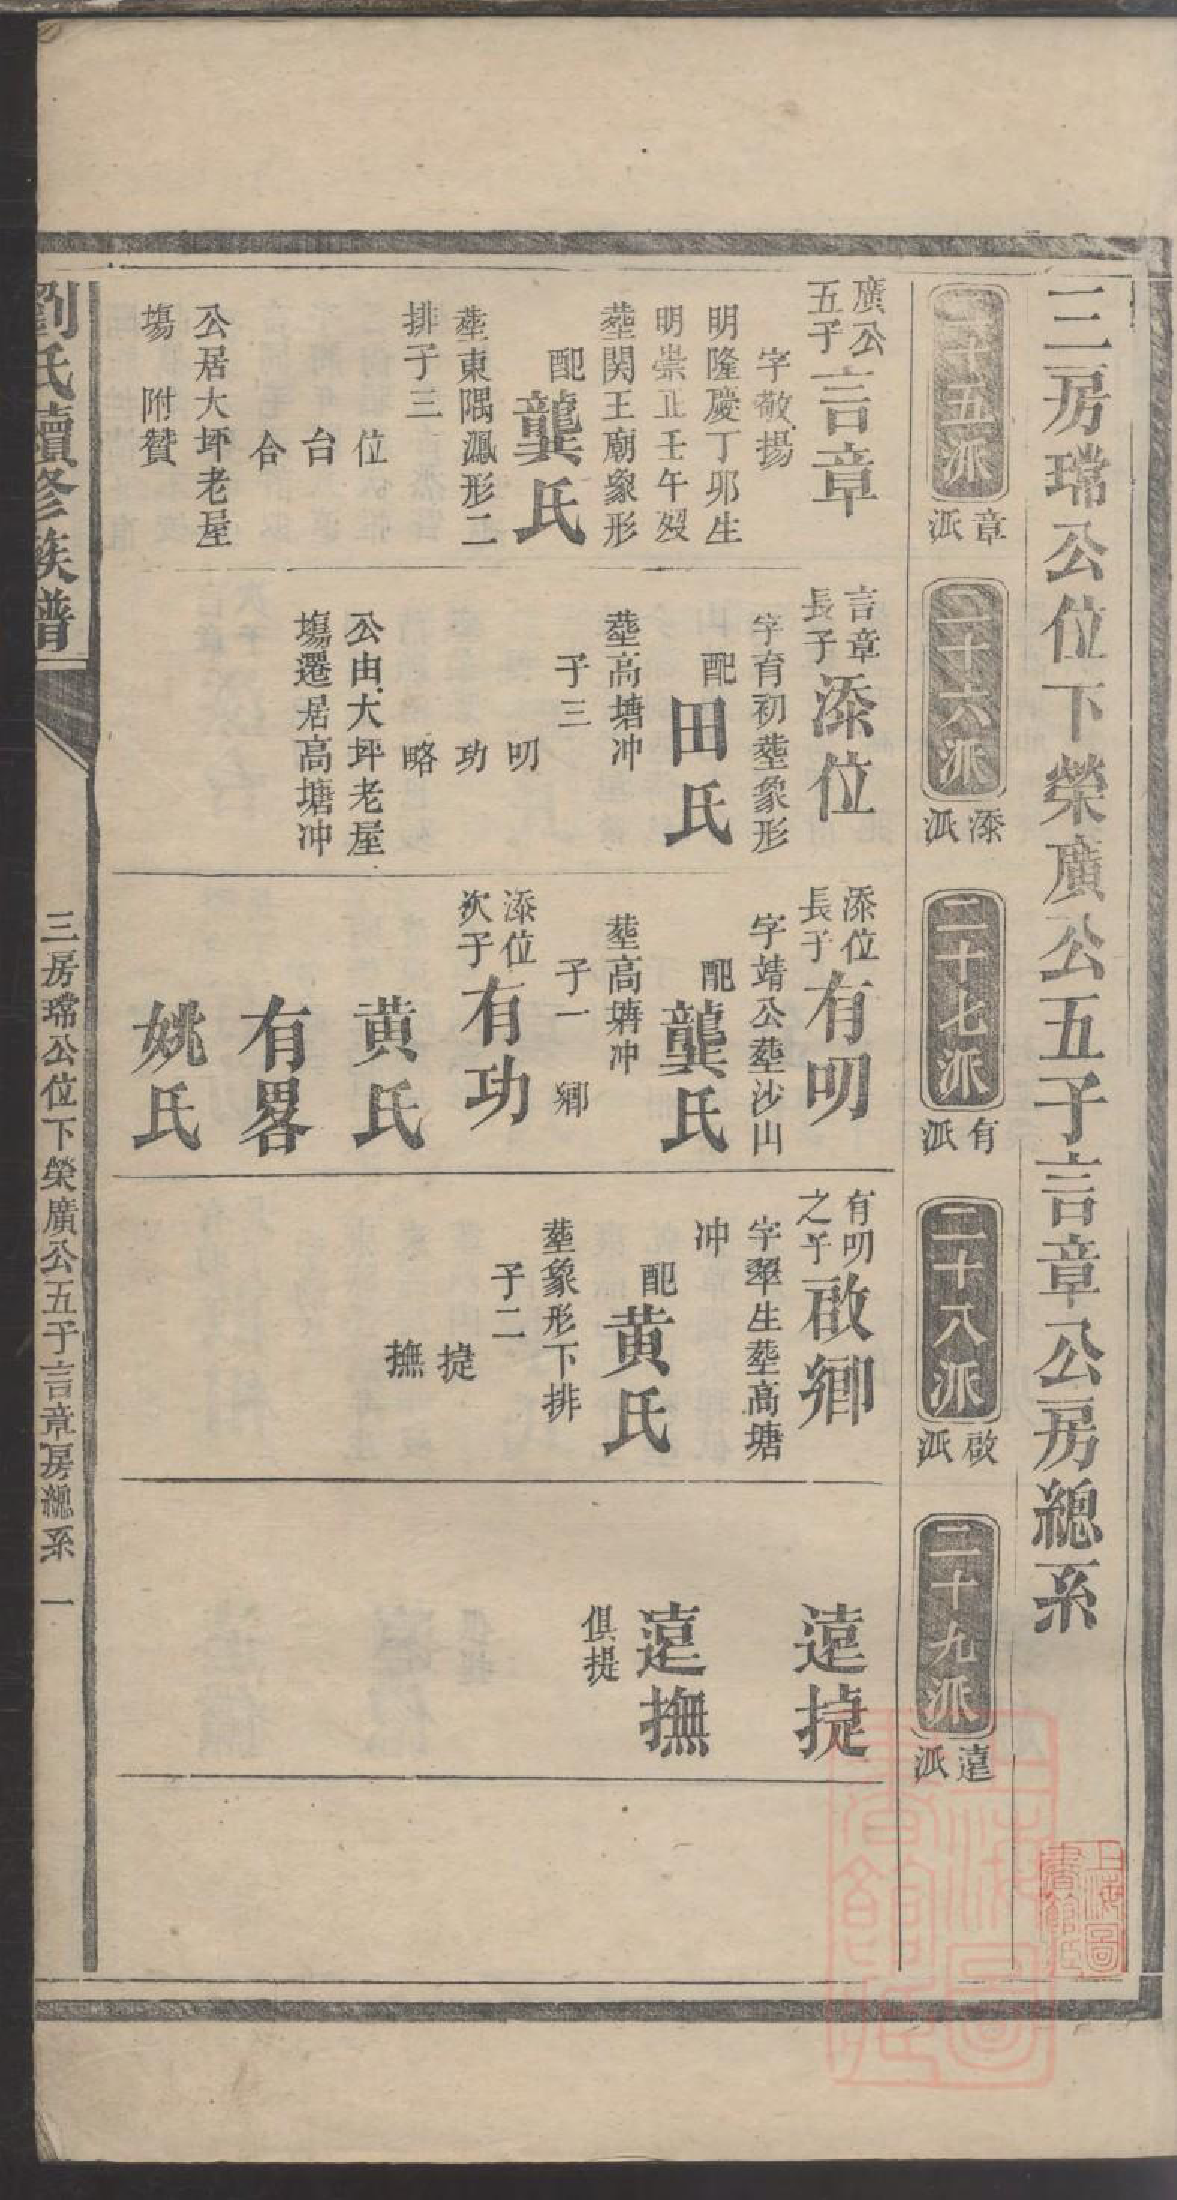 三房瑺公位下榮廣公五子言章公房總系
二十五派
章派
二十六派
添派
二十七派
有派
二十八派
啟派
二十九派
遠派
廣公
五子
言章
字敬揚
明隆慶丁卯生
明崇正壬午歿
塟関王廟象形
配
龔氏
塟東隅鳯形二
排子三
位
台
合
公居大坪老屋
塲 附贊
言章
長子
添位
字育初塟象形
配
田氏
塟高塘冲
子三
叨
功
略
公由大坪老屋
塲遷居高塘冲
添位
長子
有叨
字靖公塟沙山
配
龔氏
塟高塘冲
子一 鄉
添位
次子
有功
黄氏
有畧
姚氏
有叨
之子
啟鄉
字翠生塟高塘
冲
配
黄氏
塟象形下排
子二
㨗
撫
遠㨗
遠撫
俱㨗
劉氏續修族譜
三房瑺公位下榮廣公五子言章房總系 一
上海圖
書館藏
上海圖
書館藏